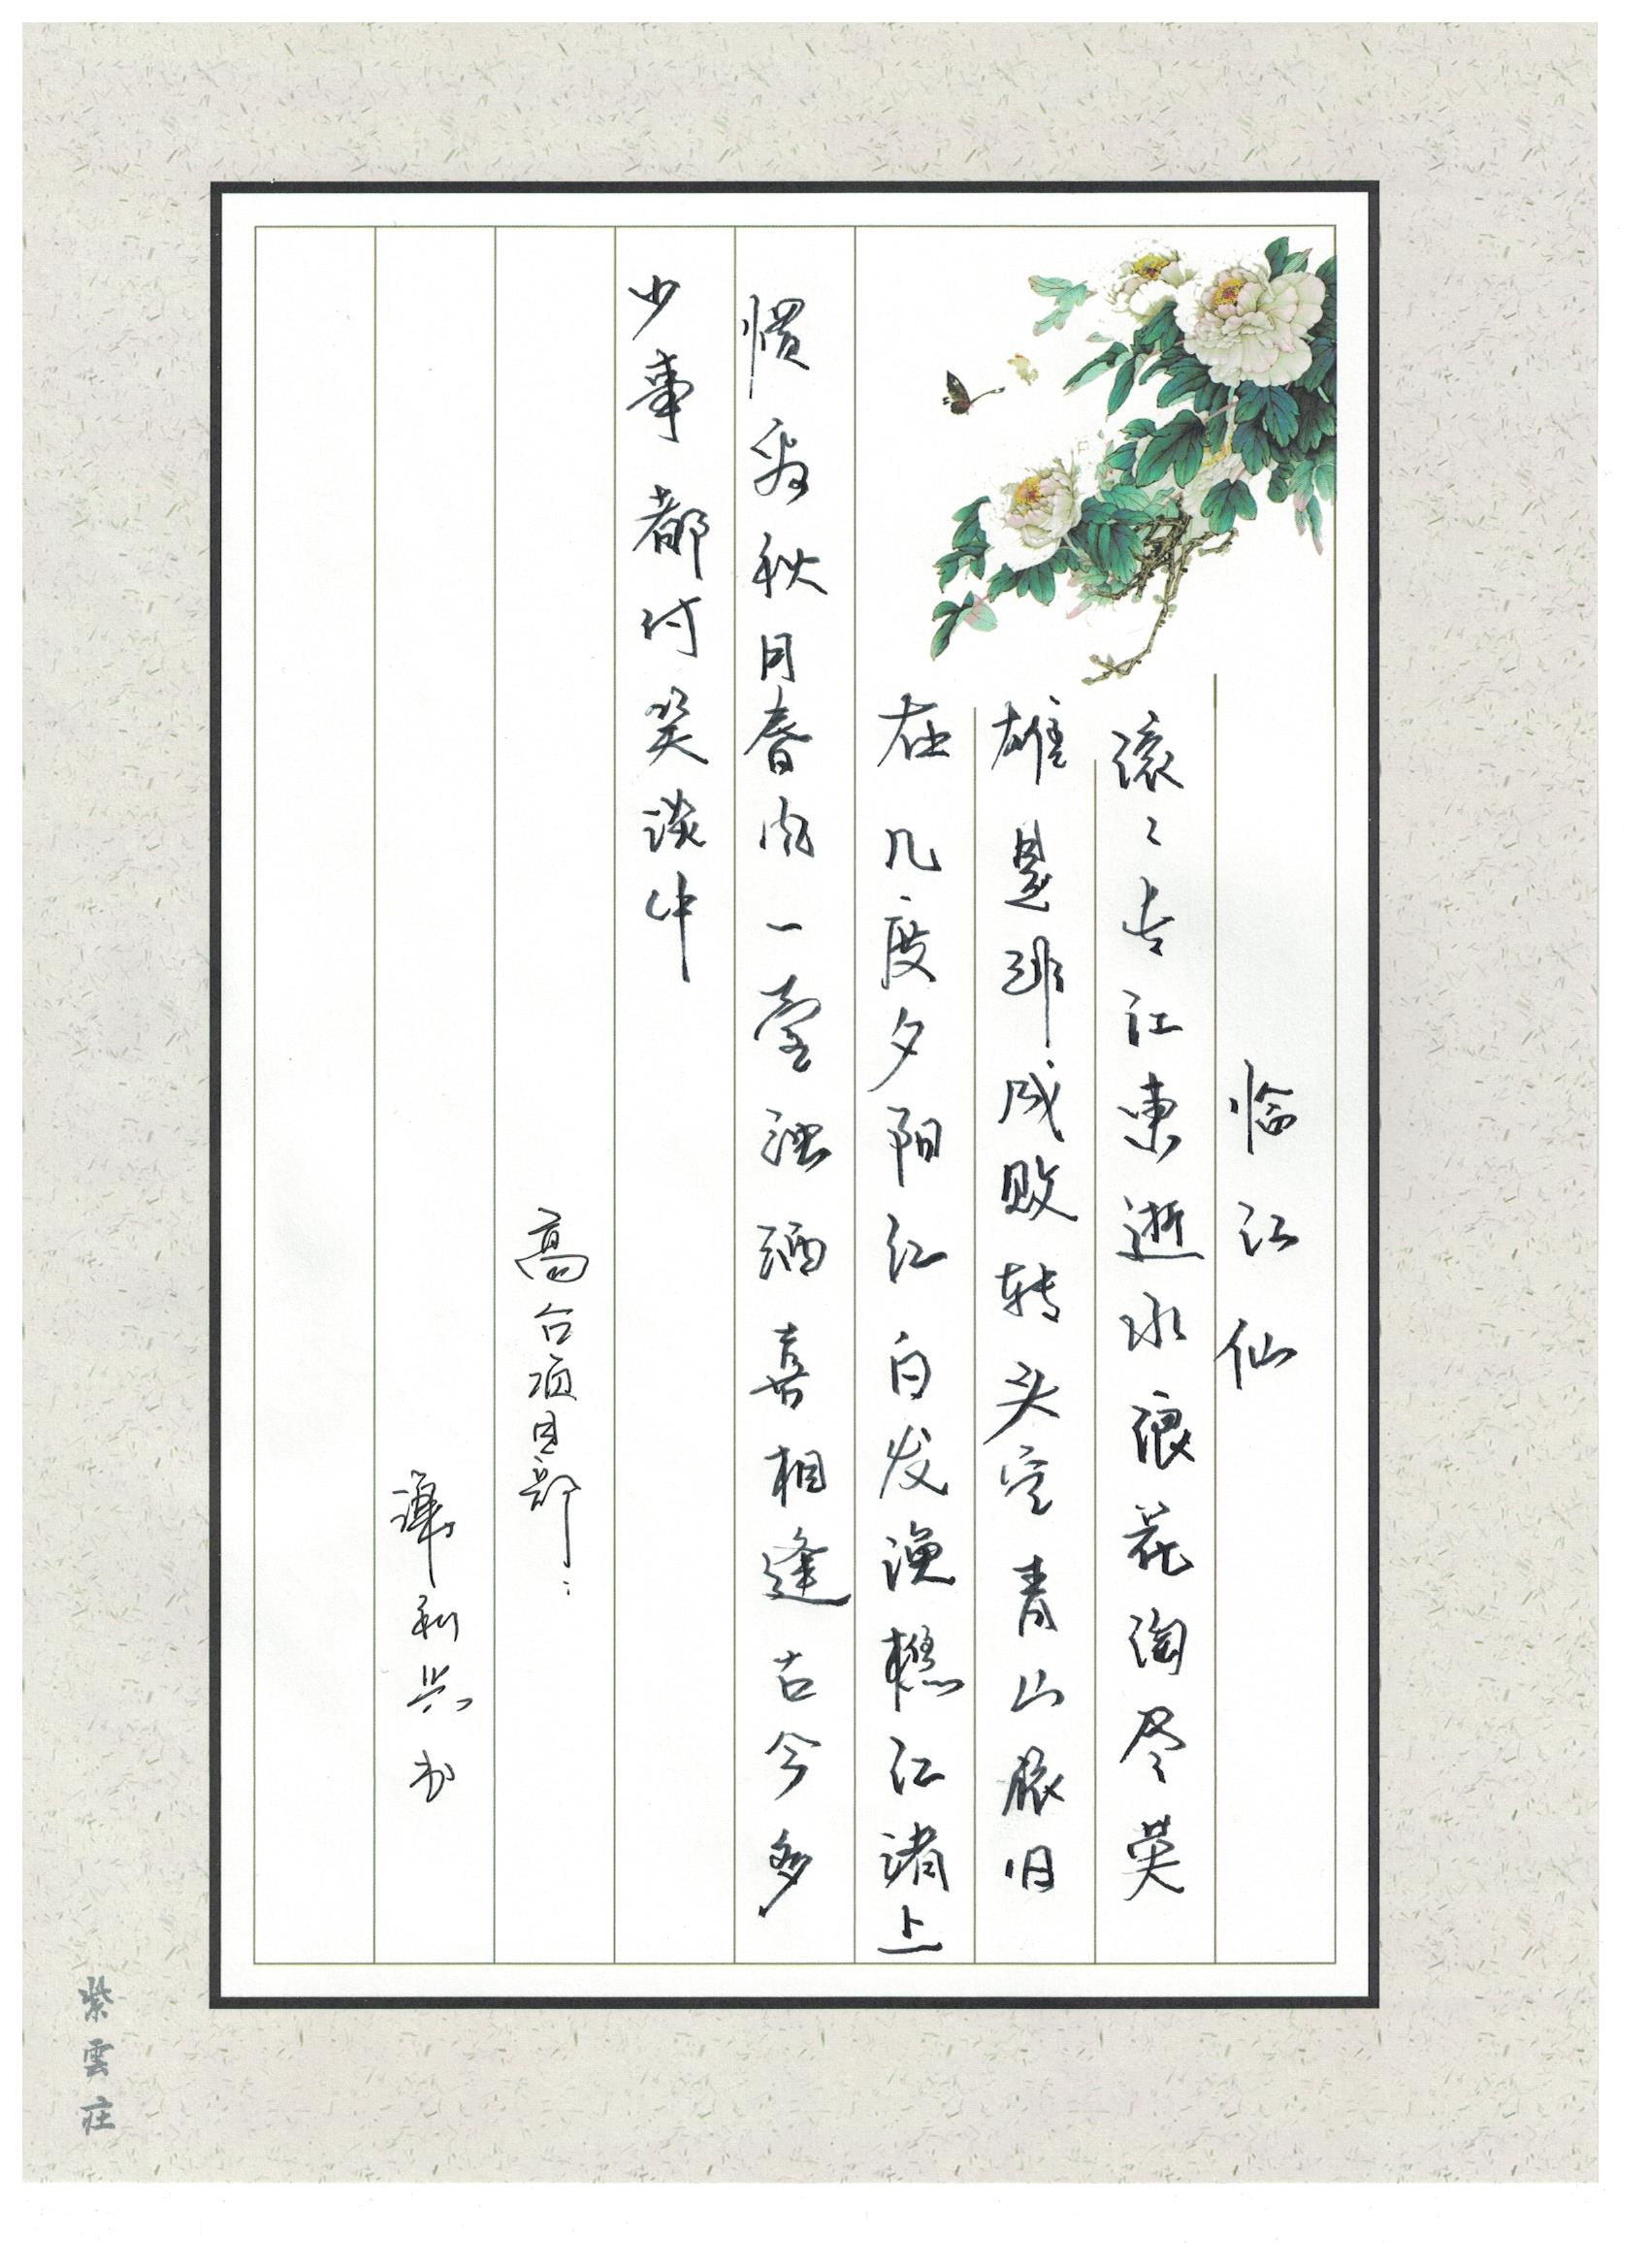 临江仙
滚滚长江東逝水浪花淘尽英
雄是非成败转头空青山依旧
在几度夕阳红白发渔樵江渚上
惯看秋月春风一壶浊酒喜相逢古今多
少事都付笑谈中
高台项目部：
利兴书
紫雲庄